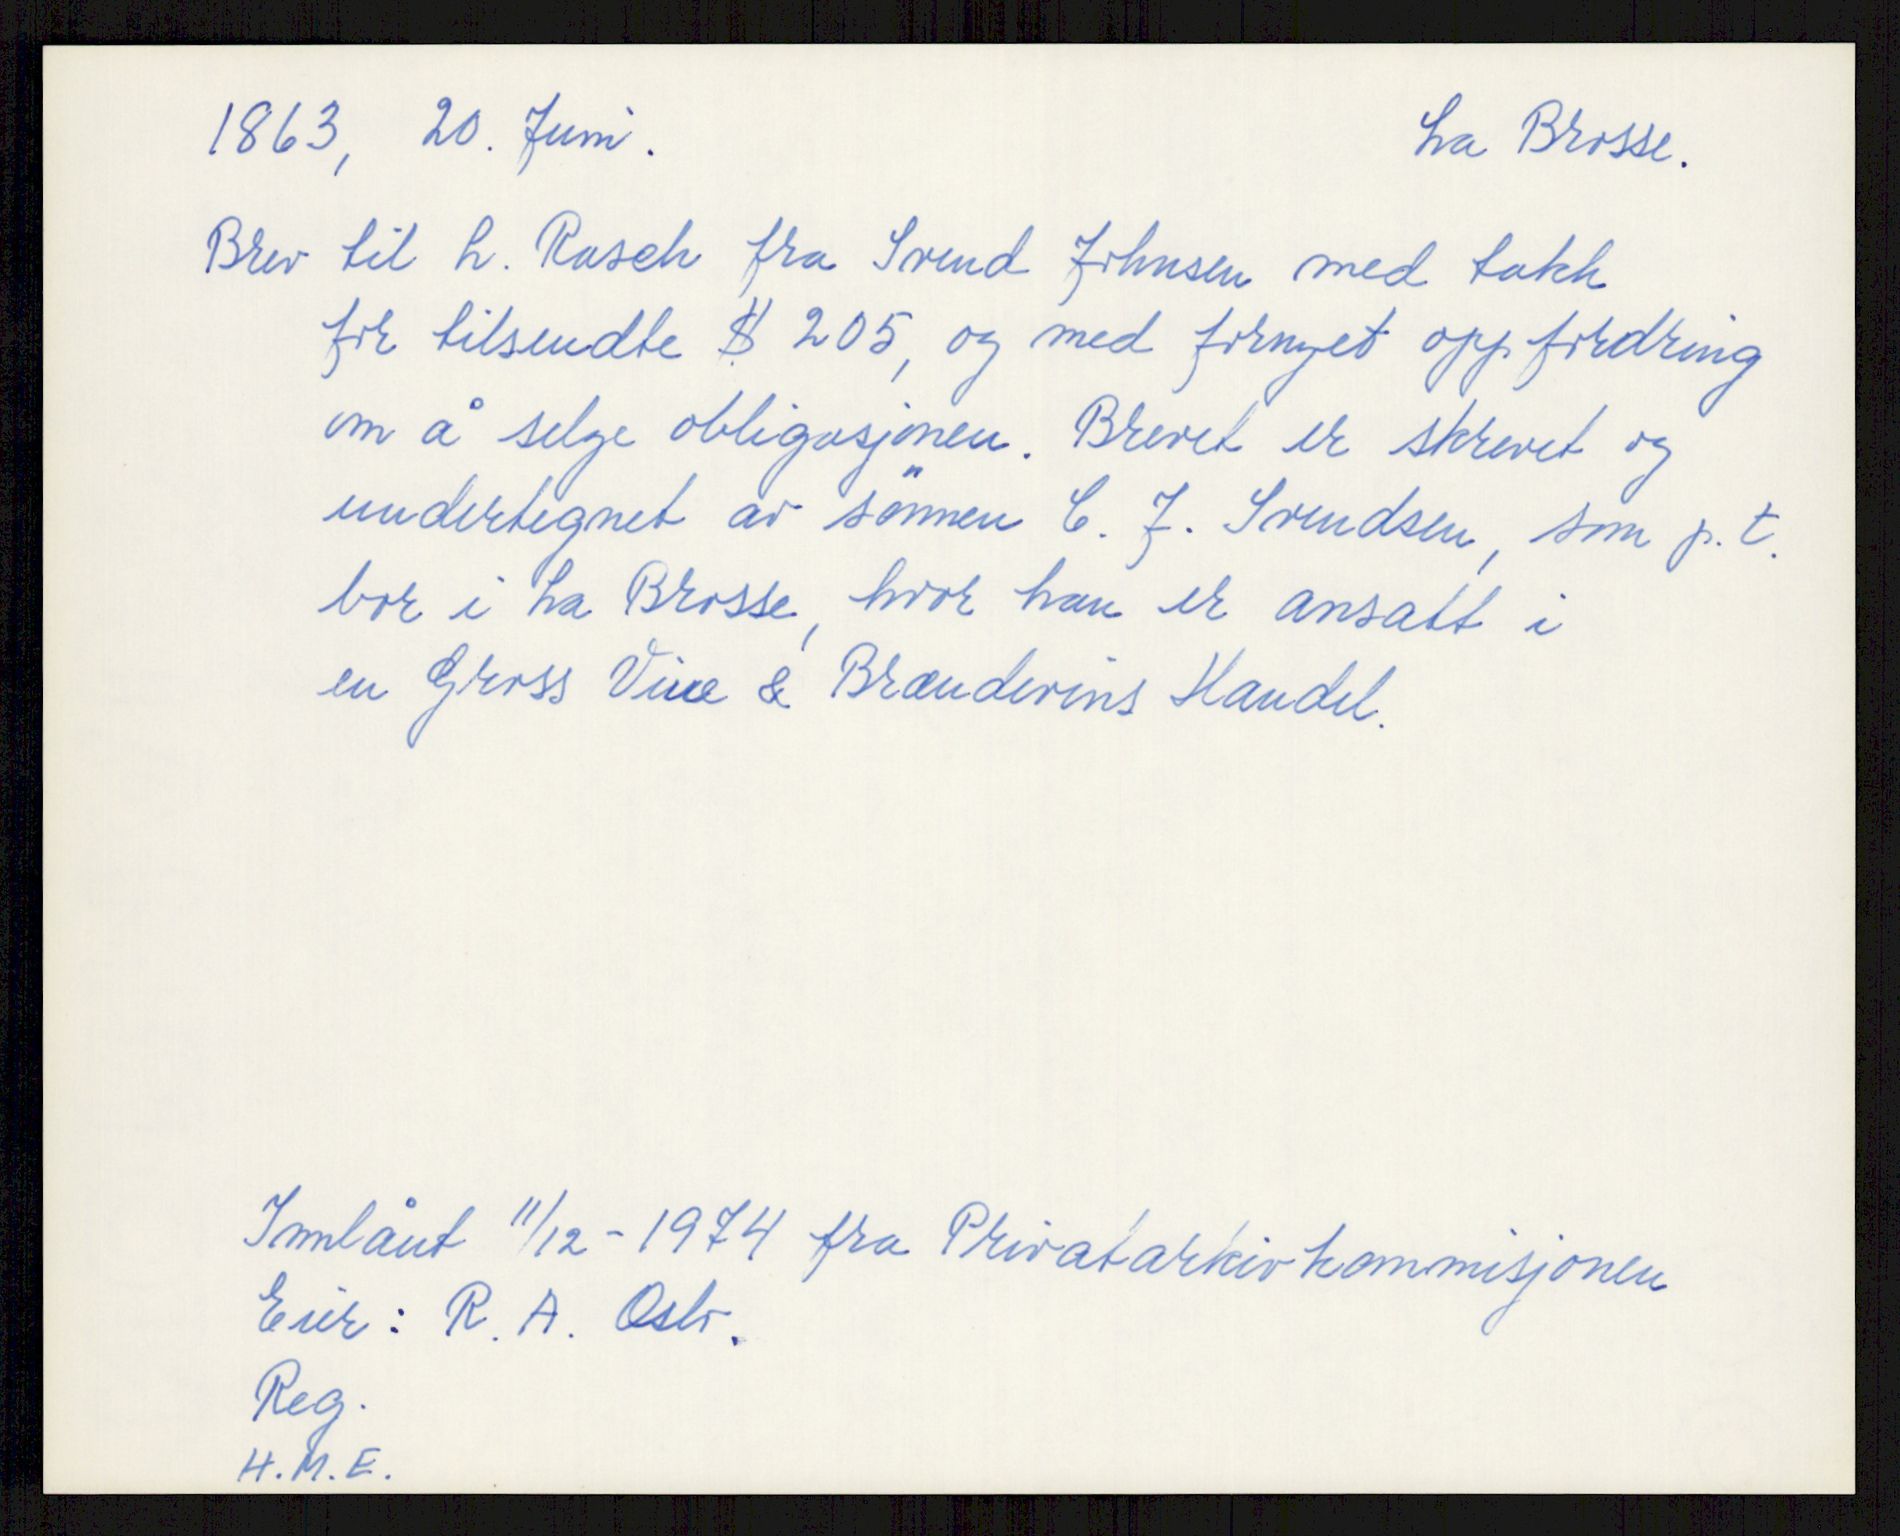 1863, 20. Juni. La Brosse.
Brev til L. Rasch fra Svend Johnsen med takk
for tilsendte $ 205, og med fornyet oppfordring
om å selge obligasjonen. Brevet er skrevet og
undertegnet av sönnen C. J. Svendsen, som p.t.
bor i La Brosse, hvor han er ansatt i
en Gross Vine & Brændevins Handel.
Innlånt 11/12-1974 fra Privatarkivkommisjonen
Eier: R. A. Oslo.
Reg.
H.M.E.